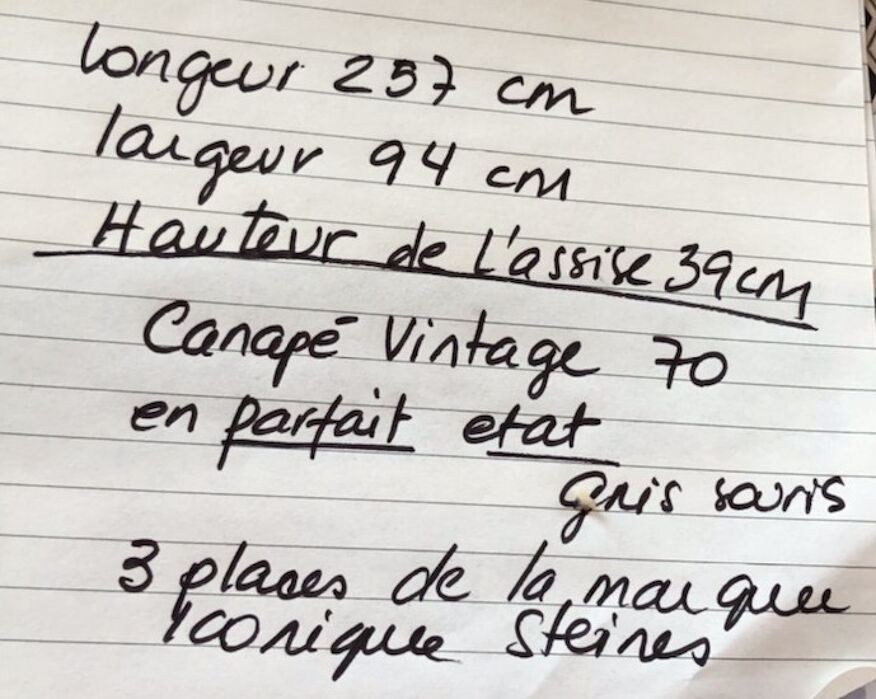 longeur 257 cm
largeur 94 cm
Hauteur de L'assise 39cm
Canapé Vintage 70
en parfait etat
gris souris
3 places de la marque
Iconique Steines